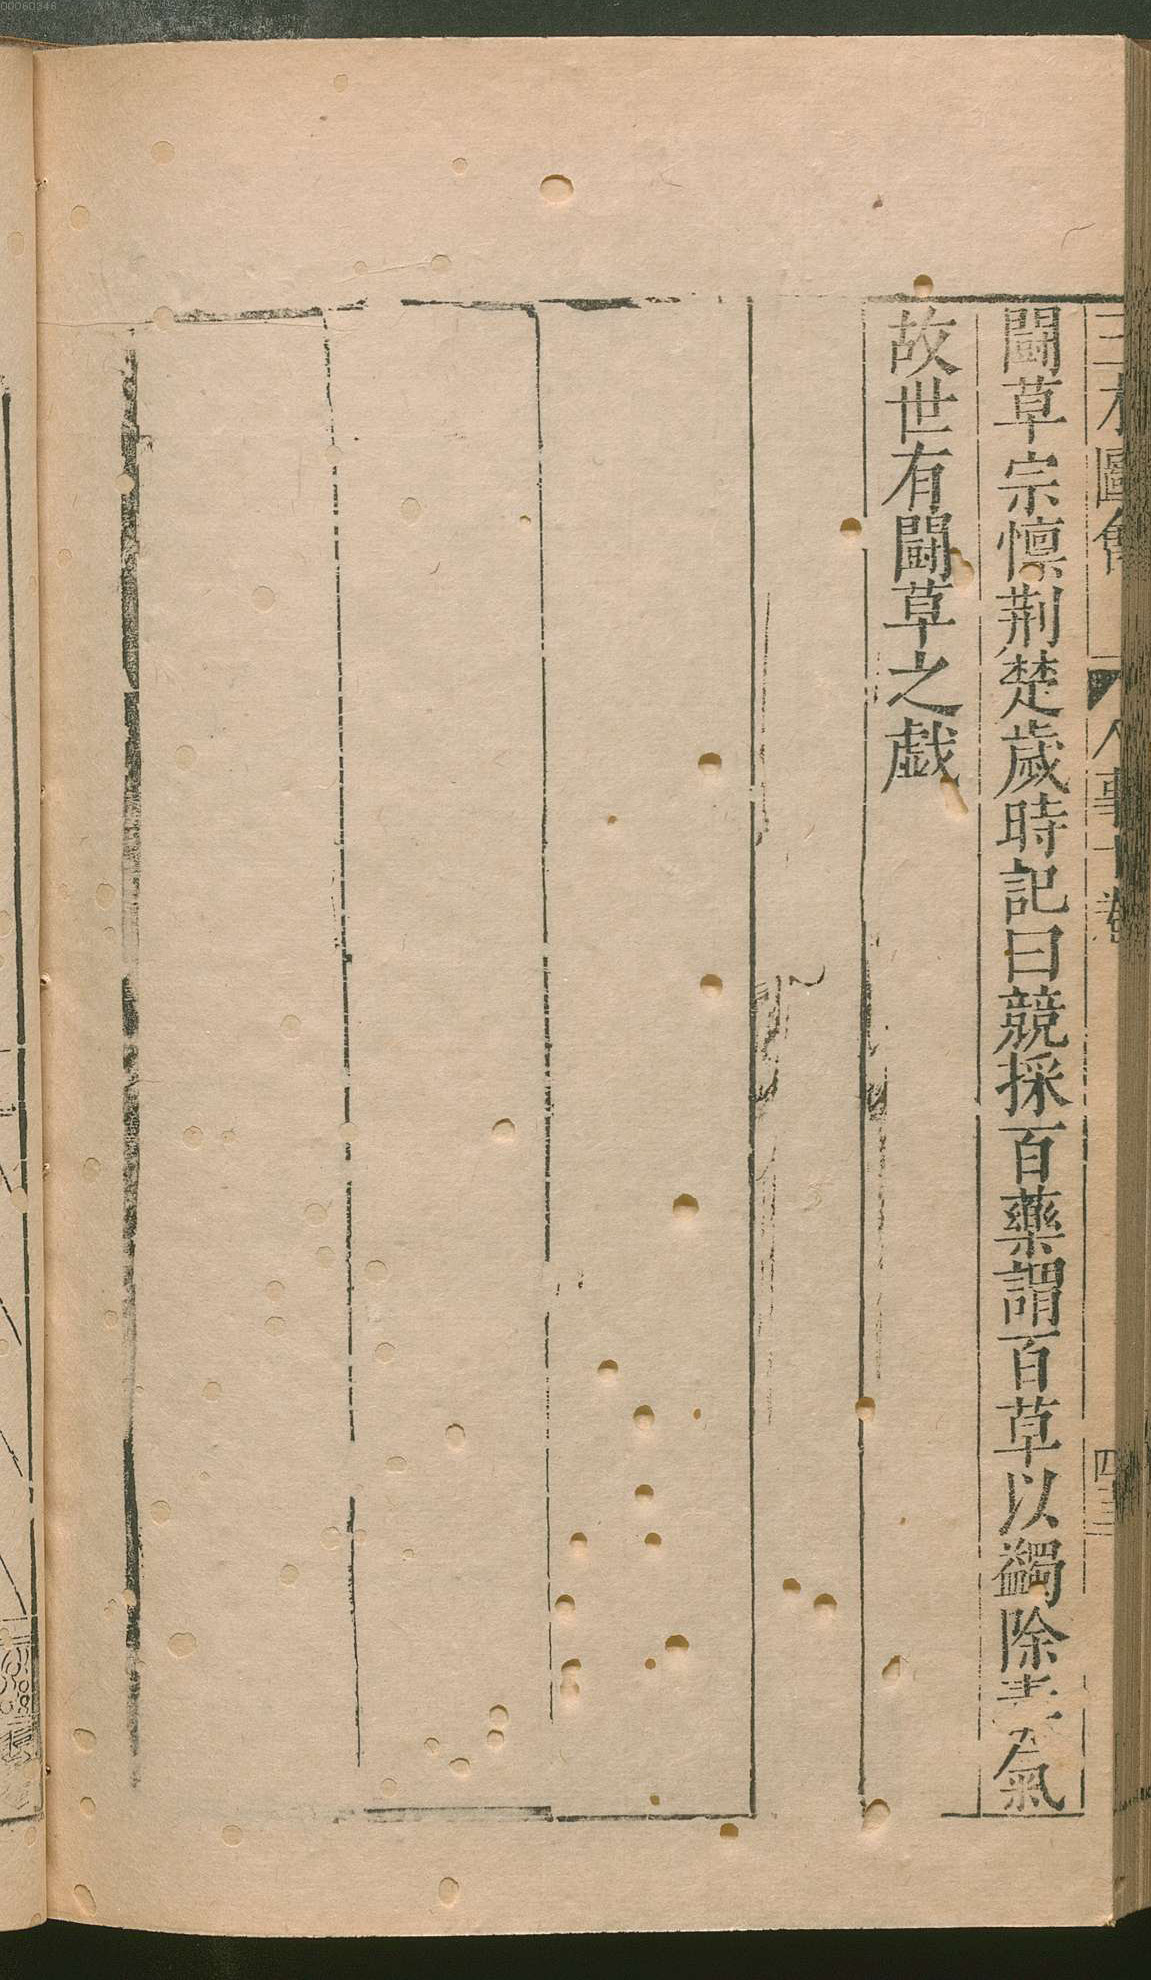 三才圖會 人事十卷 四三
鬪草宗懍荆楚歲時記曰競採百藥謂百草以蠲除毒氣
故世有鬪草之戯
00060346